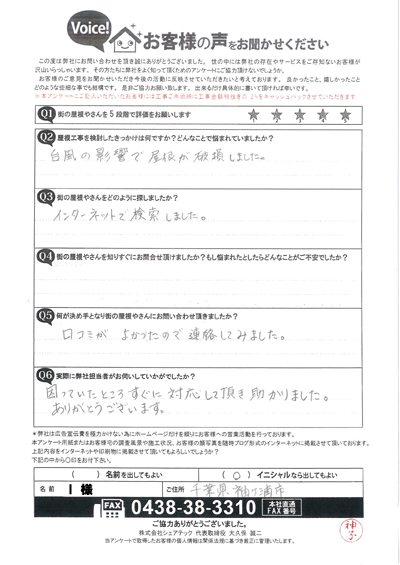 Voice!
お客様の声をお聞かせください
この度は弊社にお問い合わせを頂き誠にありがとうございました。世の中には弊社の存在やサービスをご存知ないお客様が
沢山いらっしゃいます。その方たちに弊社をよく知って頂くためのアンケートにご協力頂けないでしょうか。
お客様のご意見をお聞かせいただき今後の活動に反映させていただきたいと考えております。良かったこと、嬉しかったこと
どのような些細な事でも結構です。是非ご協力お願い致します。出来るだけ具体的に書いて頂ければ幸いです。
Q1 街の屋根やさんを5段階で評価をお願いします
Q2 屋根工事を検討したきっかけは何ですか?どんなことで悩まれていましたか?
台風の影響で屋根が破損しました。
Q3 街の屋根やさんをどのように探しましたか?
インターネットで検索しました。
Q4 街の屋根やさんを知りすぐにお問合せ頂けましたか?もし悩まれたとしたらどんなことがご不安でしたか?
Q5 何が決め手となり街の屋根やさんにお問い合わせ頂きましたか?
口コミが よかったので連絡してみました。
Q6 実際に弊社担当者がお伺いしていかがでしたか?
困っていたところすぐに対応して頂き助かりました。
ありがとうございます。
*弊社は広告宣伝費を極力かけない為にホームページだけを頼りにお客様への営業活動を行っております。
本アンケート用紙またはお客様宅の調査風景や施工状況、お客様の顔写真を随時ブログ形式のインターネットに掲載させて頂いております。
上記内容をインターネットや印刷物に掲載させて頂いてもよろしいでしょうか?
下記の中から○印をお付け下さい。
( )名前を出してもよい (○)イニシャルなら出してもよい
名前 I 様 ご住所 千葉県袖ヶ浦市
FAX 0438-38-3310 本社直通 FAX番号
ご協力ありがとうございました。
株式会社シェアテック 代表取締役 大久保 誠二
当アンケートで取得したお客様の個人情報は関係法規に基づき厳正に管理いたします。
神子